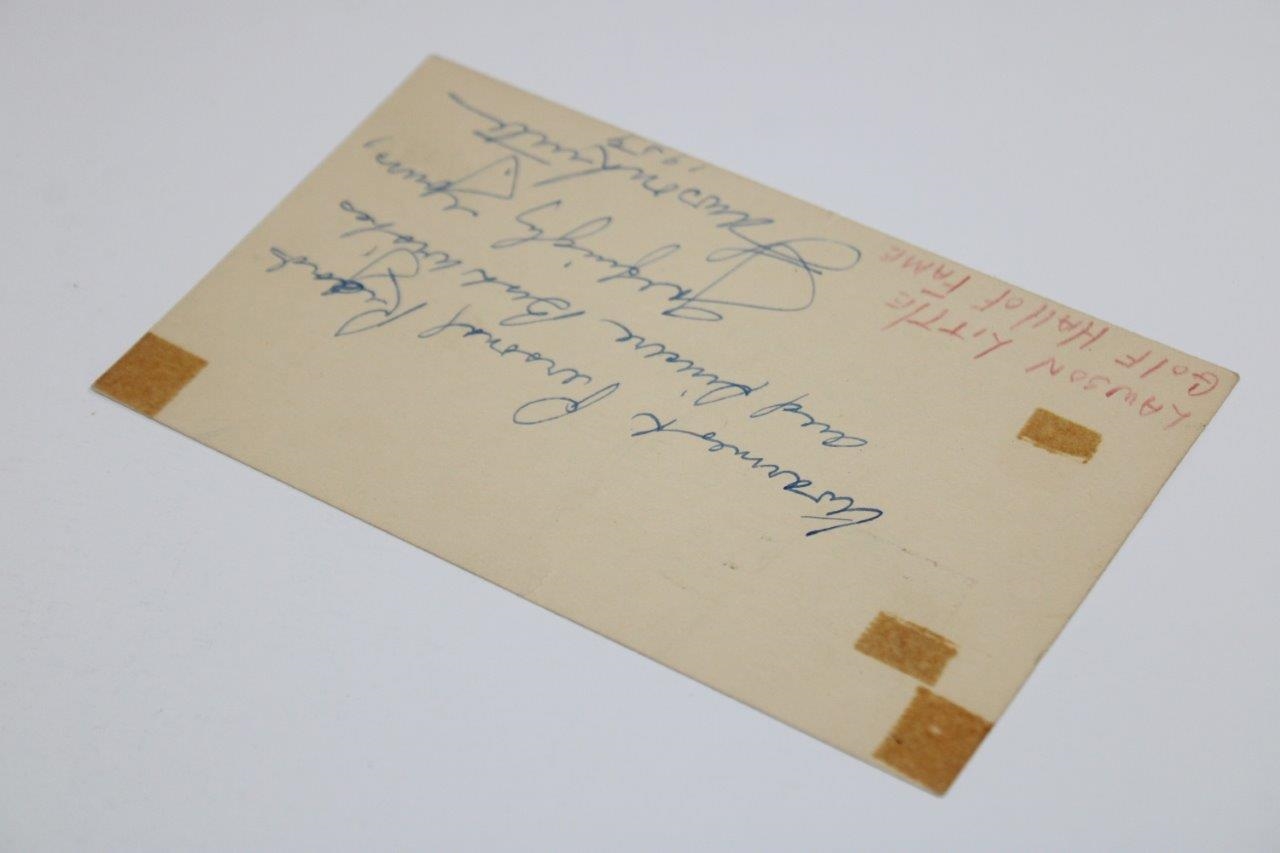 Warmest Personal Regards
and Sincere Best Wishes
Fairingly Yours,
Lawson Little Jr.
1954
LAWSON LITTLE
GOLF HALL OF FAME